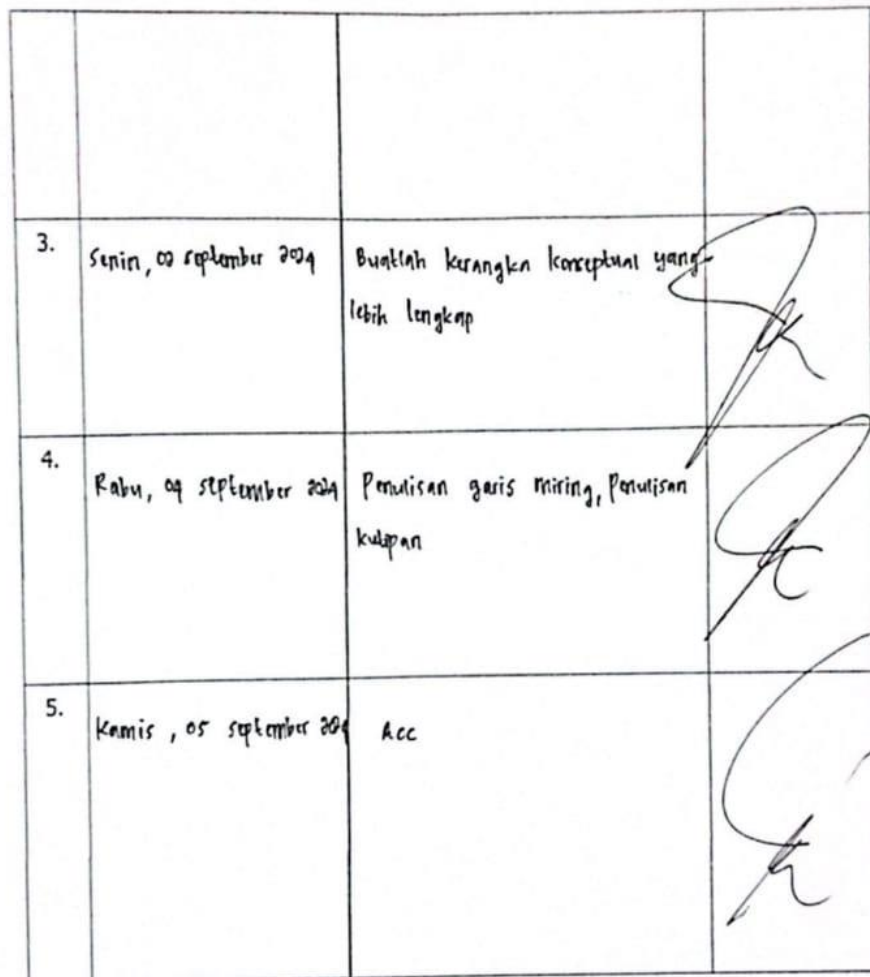 3.
Senin, 02 september 2024
Buatlah kerangka konseptual yang
lebih lengkap
4.
Rabu, 04 september 2024
Penulisan garis miring, Penulisan
kutipan
5.
Kamis, 05 september 2024
Acc